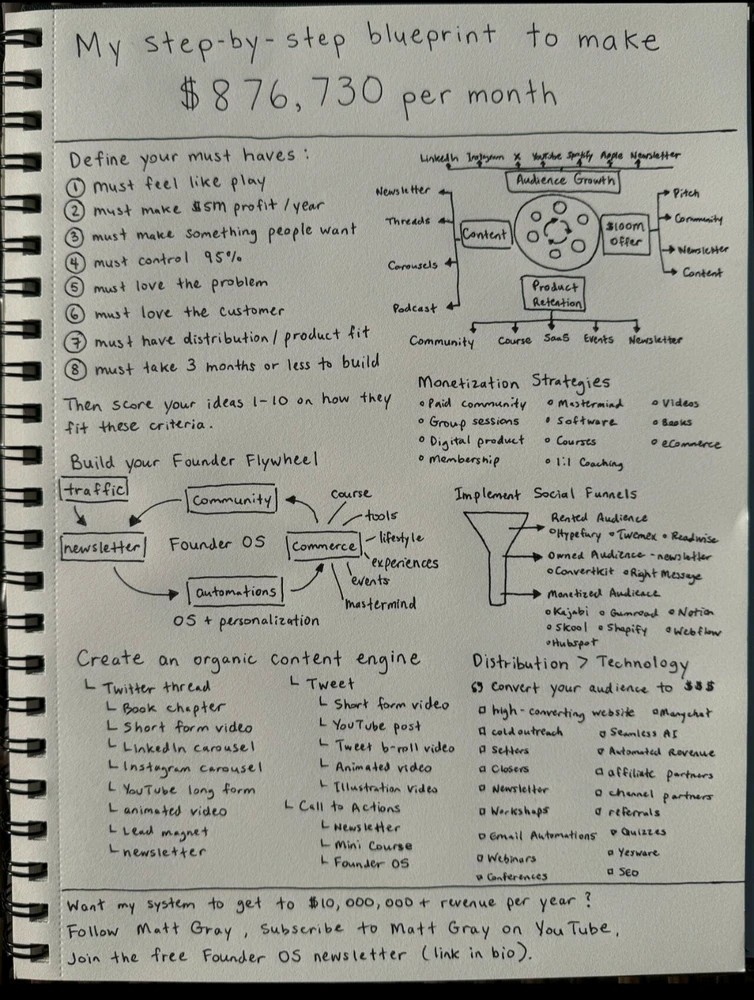 My step-by-step blueprint to make
$876,730 per month
Define your must haves:
① must feel like play
② must make $5M profit/year
③ must make something people want
④ must control 95%
⑤ must love the problem
⑥ must love the customer
⑦ must have distribution/product fit
⑧ must take 3 months or less to build
Then score your ideas 1-10 on how they
fit these criteria.
LinkedIn Instagram X YouTube Spotify Apple Newsletter
Audience Growth
Newsletter
Threads
Carousels
Podcast
Content
$100M
Offer
Pitch
Community
Newsletter
Content
Product
Retention
Community Course SaaS Events Newsletter
Monetization Strategies
Paid community
Group sessions
Digital product
Membership
Mastermind
Software
Courses
1:1 Coaching
Videos
Books
eCommerce
Build your Founder Flywheel
traffic
Community
newsletter
Founder OS
Commerce
automations
OS + personalization
course
tools
lifestyle
experiences
events
mastermind
Implement Social Funnels
Rented Audience
Hypefury Twemex Readwise
Owned Audience - newsletter
ConvertKit Right Message
Monetized Audience
Kajabi Gumroad Notion
Skool Shopify Webflow
Hubspot
Create an organic content engine
Twitter thread
Book chapter
Short form video
LinkedIn carousel
Instagram carousel
YouTube long form
animated video
Lead magnet
newsletter
Tweet
Short form video
YouTube post
Tweet b-roll video
Animated video
Illustration video
Call to Actions
Newsletter
Mini Course
Founder OS
Distribution > Technology
Convert your audience to $$$
high-converting website
cold outreach
Setters
Closers
Newsletter
Workshops
Email Automations
Webinars
Conferences
Manychat
Seamless AI
Automated Revenue
affiliate partners
channel partners
referrals
Quizzes
Yesware
SEO
Want my system to get to $10,000,000+ revenue per year?
Follow Matt Gray, Subscribe to Matt Gray on YouTube,
Join the free Founder OS newsletter (link in bio).